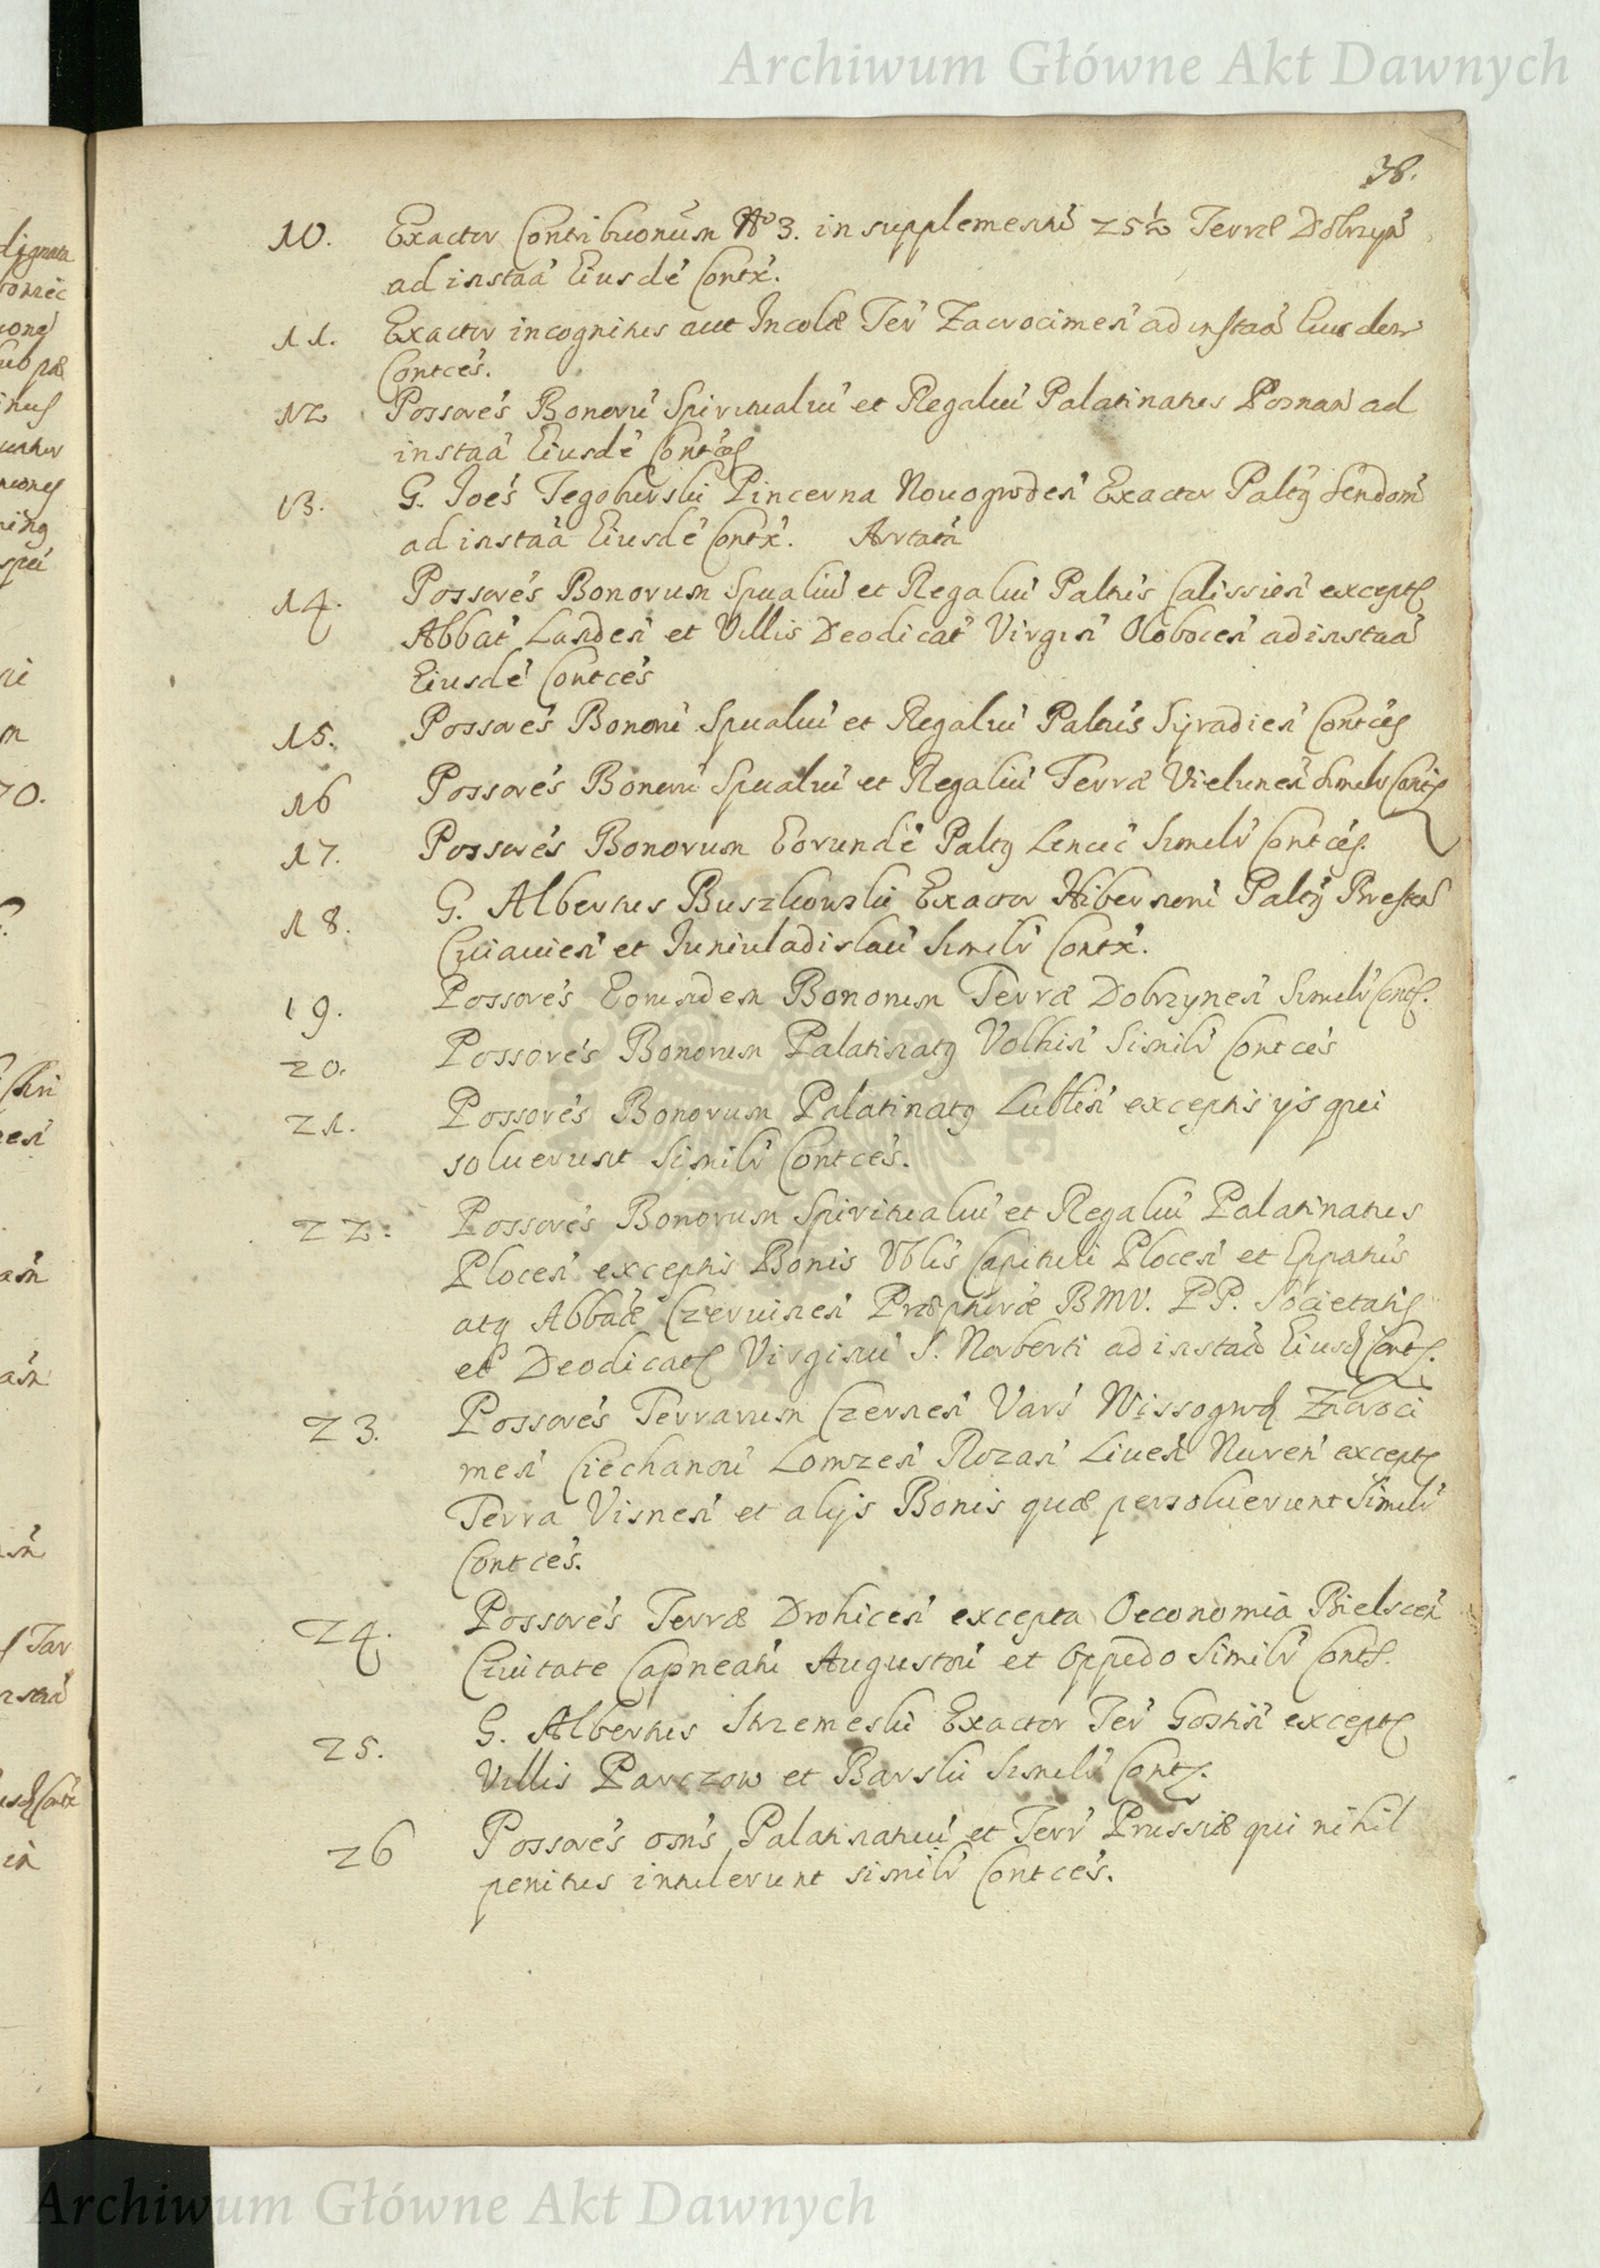 Archiwum Główne Akt Dawnych
38.
10. Exactor Contribuonũm No 3. in supplementũ 25½ Terræ Dobrzyn̄
ad instaã Eiusdẽ Contx̃.
11. Exactor incognitus aut Incolæ Ter̃ Zacrocimen̄ ad instaã Eiusdem
Contces̃.
12 Possores̃ Bonorũ Spiritualiũ et Regaliũ Palatinatus Posnan̄ ad
instaã Eiusdẽ Contces̃
13. G. Joes̃ Tegoburski Pincerna Nouogroden̄ Exactor Palty Sendom̃
ad instaã Eiusdẽ Contx̃. Artatã
14. Possores̃ Bonorum Spualiũ et Regaliũ Paltus̃ Calissien̄ excepts
Abbat̃ Landen̄ et Villis Deodicat̃ Virgin̄ Olobocen̄ ad instaã
Eiusdẽ Contces̃
15. Possores̃ Bonorũ Spualiũ et Regaliũ Paltus̃ Syradien̄ Contces̃
16 Possores̃ Bonorũ Spualiũ et Regaliũ Terræ Vielunen̄ Simılr̃ Contces̃
17. Possores̃ Bonorum Eorundẽ Palty Lencic̃ Simılr̃ Contces̃.
18. G. Albertus Buszkowski Exactor Hibernorũ Palty Bresten̄
Cuiauien̄ et Iuniuladislaũ Simılr̃ Contx̃.
19. Possores̃ Eorundem Bonorum Terræ Dobrzynen̄ Simılr̃ Conts.
20. Possores̃ Bonorum Palatinaty Volhin̄ Similr̃ Contces̃
21. Possores̃ Bonorum Palatinaty Lublin̄ exceptis ijs qui
soluerunt Similr̃ Contces̃.
22. Possores̃ Bonorum Spiritualiũ et Regaliũ Palatinatus
Plocen̄ exceptis Bonis Vblis̃ Capituli Plocen̄ et Eppatus̃
atq Abbaæ̃ Czeruinen̄ Præpturæ̃ BMV. PP. Societatis
et Deodicats Virginũ S. Norberti ad instaã Eiusd Conts.
23. Possores̃ Terrarum Czersen̄ Vars̃ Wissogrod Zacroci
men̄ Ciechanoũ Lomzen̄ Rozan̄ Liuen̄ Nuren̄ excepts
Terra Visnen̄ et alijs Bonis quæ persoluerunt Similr̃
Contces̃.
24. Possores̃ Terræ Drohicen̄ excepta Oeconomia Bielscen̄
Ciuitate Capneatũ Augustoũ et Oppido Similr̃ Conts.
25. G. Albertus Strzemeski Exactor Ter̃ Gostin̄ excepts
Villis Parczow et Barski Simılr̃ Contx.
26 Possores̃ omn̄s Palatinatuũ et Terr̃ Prussiæ qui nihil
penitus intulerunt similr̃ Contces̃.
Archiwum Główne Akt Dawnych